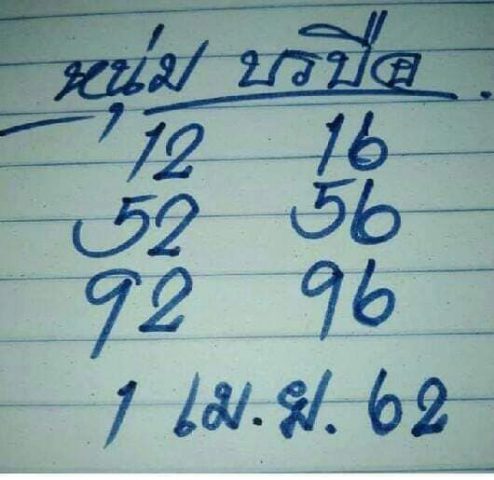 หนุ่ม บรบือ
12 16
52 56
92 96
1 เม.ย. 62